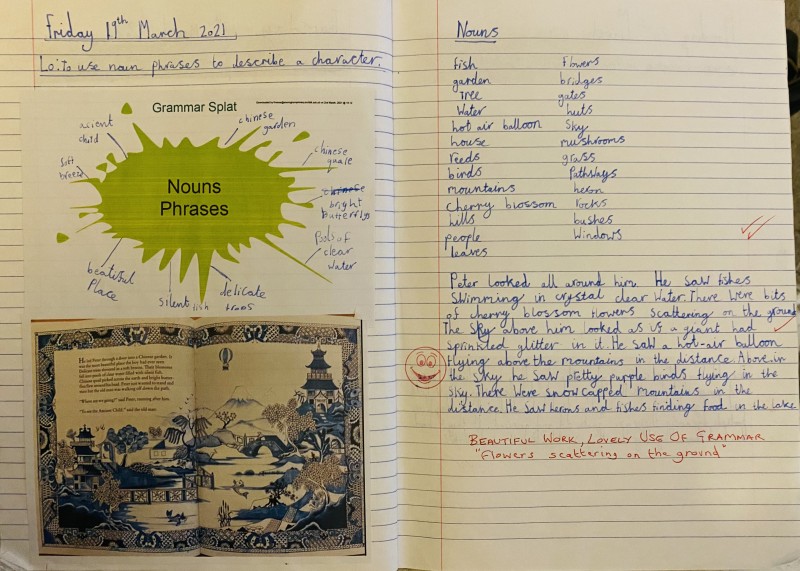 Friday 19th March 2021
Lo: To use noun phrases to describe a character.
Grammar Splat
Nouns
Phrases
acient
child
chinese
garden
chinese
quale
chinese
bright
butterflys
Pools of
clear
water
delicate
trees
silent fish
beatiful
Place
Soft
breeze
"Where are we going?" said Peter, running after him.
"To see the Ancient Child," said the old man.
Nouns
fish
garden
Tree
Water
hot air balloon
house
reeds
birds
mountains
cherry blossom
hills
people
leaves
flowers
bridges
gates
huts
Sky
mushrooms
grass
Pathways
heron
rocks
bushes
Windows
Peter looked all around him. He saw fishes
Swimming in crystal clear water. There were bits
of cherry blossom flowers scattering on the ground
The sky above him looked as is a giant had
sprinkled glitter in it. He saw a hot-air balloon
flying above the mountains in the distance. Above in
the sky he saw pretty purple birds flying in the
sky. There were snow capped mountains in the
distance. He saw herons and fishes finding food in the lake
BEAUTIFUL WORK, LOVELY USE OF GRAMMAR
"Flowers scattering on the ground"